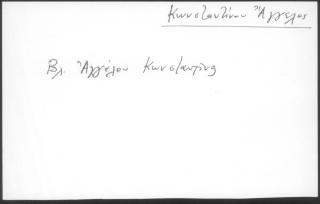 Κωνσταντίνου Ἄγγελος
Βλ. Ἀγγέλου Κωνσταντῖνος